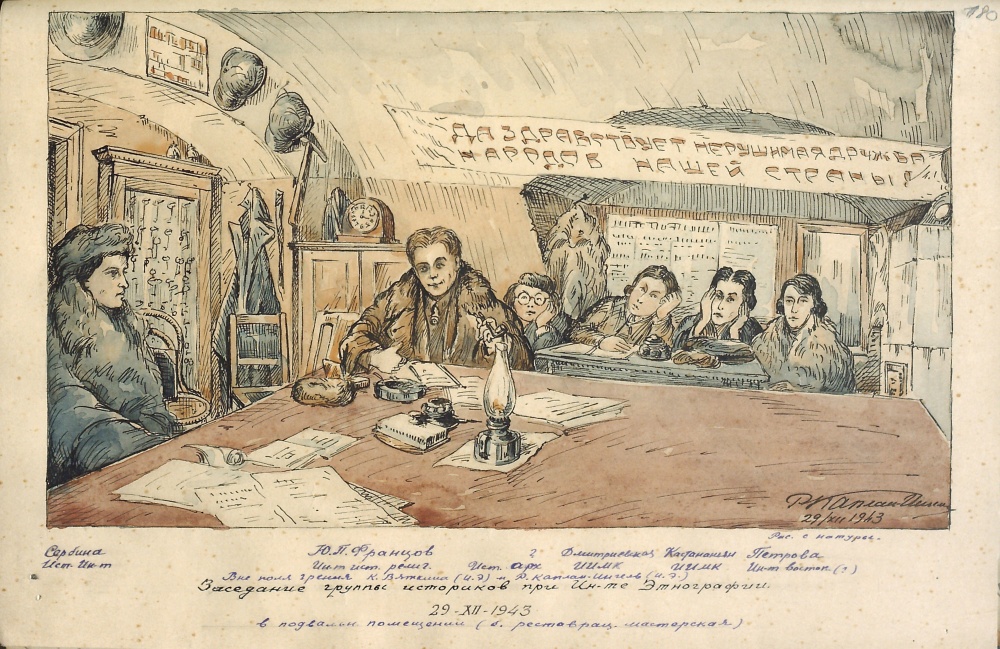 180
ДА ЗДРАВСТВУЕТ НЕРУШИМАЯ ДРУЖБА
НАРОДОВ НАШЕЙ СТРАНЫ!
Р Каплан-Ингел
29/XII 1943
Рис. с натуры.
Сербина Ю.П. Францов ? Дмитриевская Петрова
Ист. Ин-т Ин-т ист. религ. Ист. арх ИИМК ИИМК Ин-т восток (?)
Вне поля зрения К. Вяткина (И.Э) и Р. Каплан-Ингель (И.Э.)
Заседание группы историков при Ин-те Этнографии
29-XII-1943
в подвальн помещении (б. реставрац. мастерская)